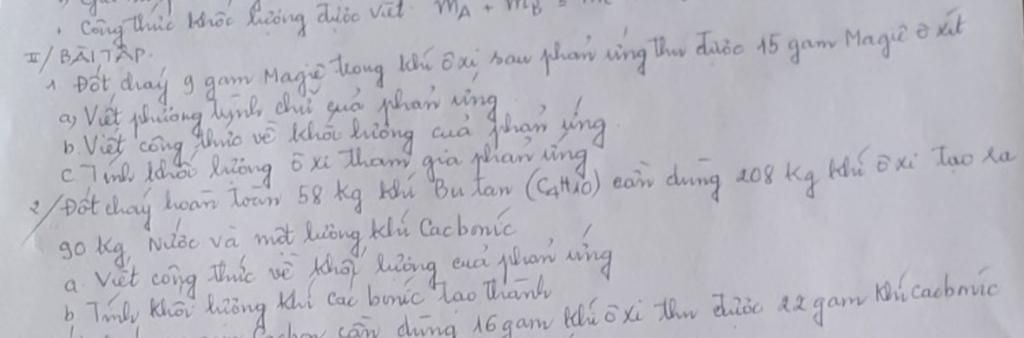 . Công thức khối lượng được viết. mA + mB =
II/ BÀI TẬP.
1 Đốt cháy 9 gam Magiê trong khí ôxi sau phản ứng thu được 15 gam Magiê ôxit
a, Viết phương trình chữ quả phản ứng
b. Viết công thức về khối lượng cuả phản ứng.
c. Tính khối lượng ôxi tham gia phản ứng
2/ Đốt cháy hoàn toàn 58 kg khí Butan (C4H10) cần dùng 208 kg khí ôxi tạo ra
90 kg, Nước và một lượng khí Cacbonic
a. Viết công thức về khối lượng cuả phản ứng
b Tính khối lượng khí cac bonic tạo thành
cần dùng 16 gam khí ôxi thu được 22 gam khí cacbonic